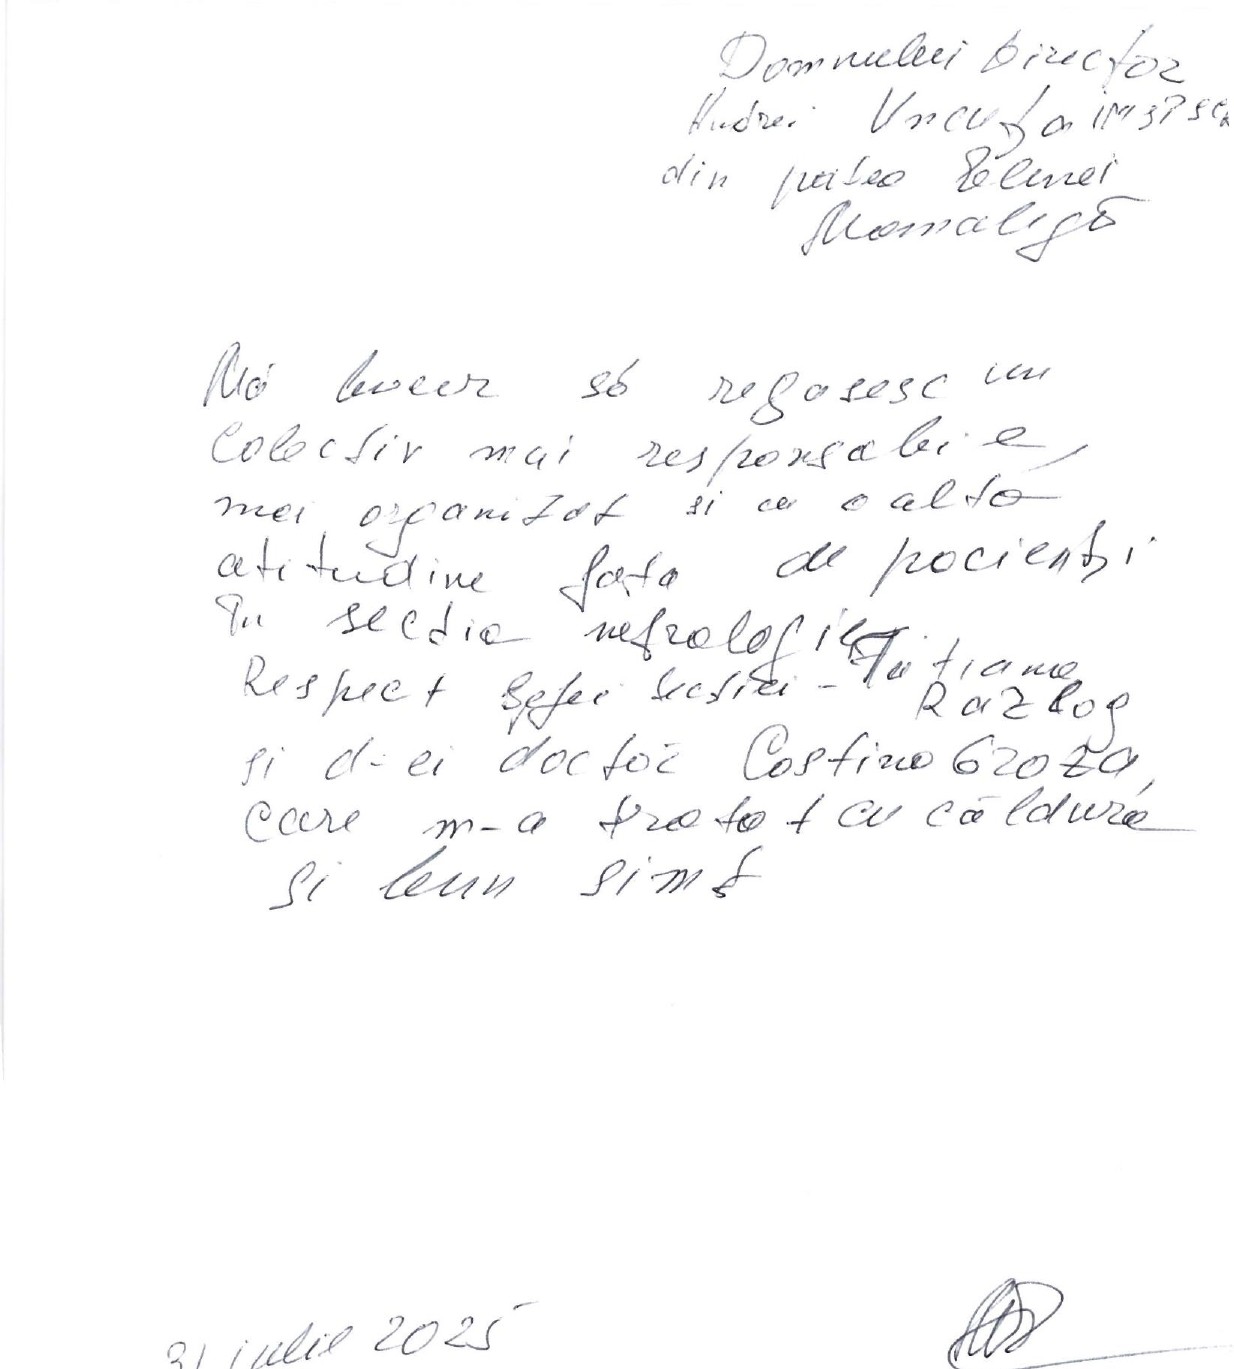 Domnului Director
Andrei Uncuța IMSP SCR
din partea Elenei
Mamaligă
Mă bucur să regasesc un
Colectiv mai responsabil,
mai organizat si cu o altă
atitudine fața de pacienți
în secția nefrologie
Respect șefei secției - Tatiana
Razlog
și d-ei doctor Costina Groza,
care m-a tratat cu căldură
și bun simț
31 iulie 2025